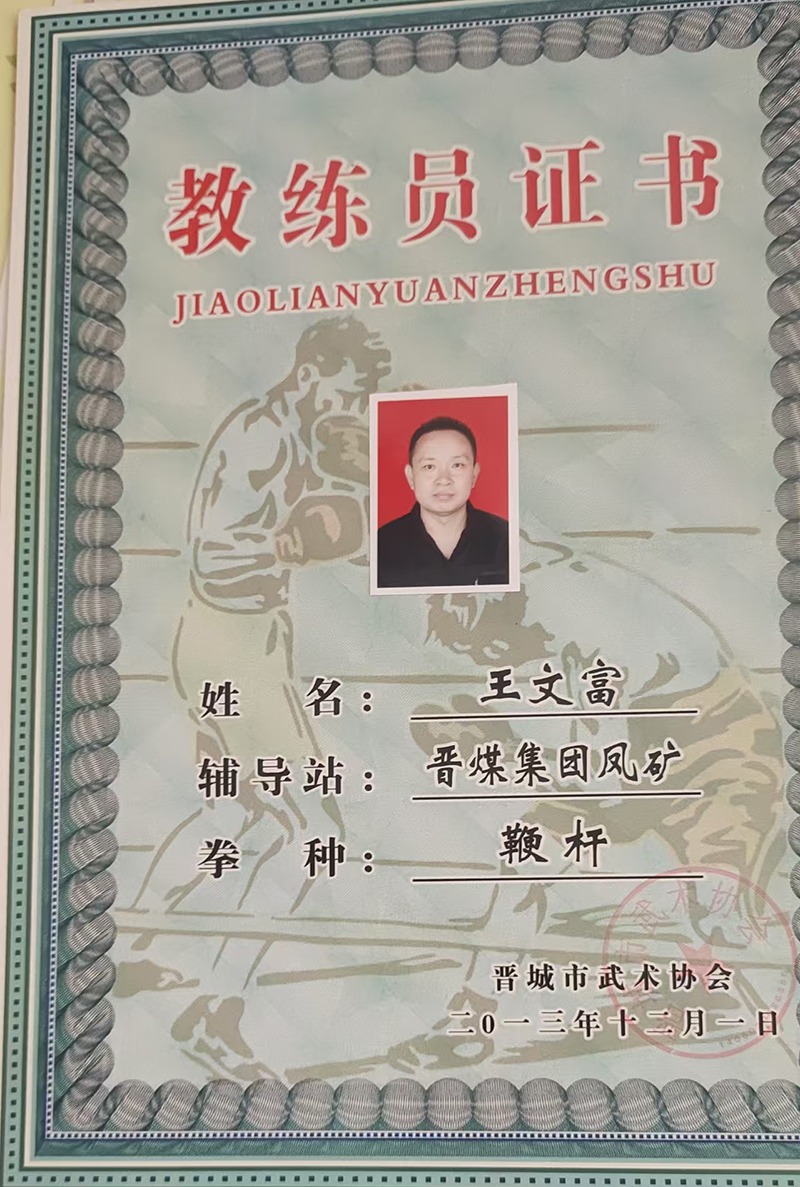 教练员证书
JIAOLIANYUANZHENGSHU
姓 名：王文富
辅导站：晋煤集团凤矿
拳 种：鞭杆
晋城市武术协会
二0一三年十二月一日
市武术协会